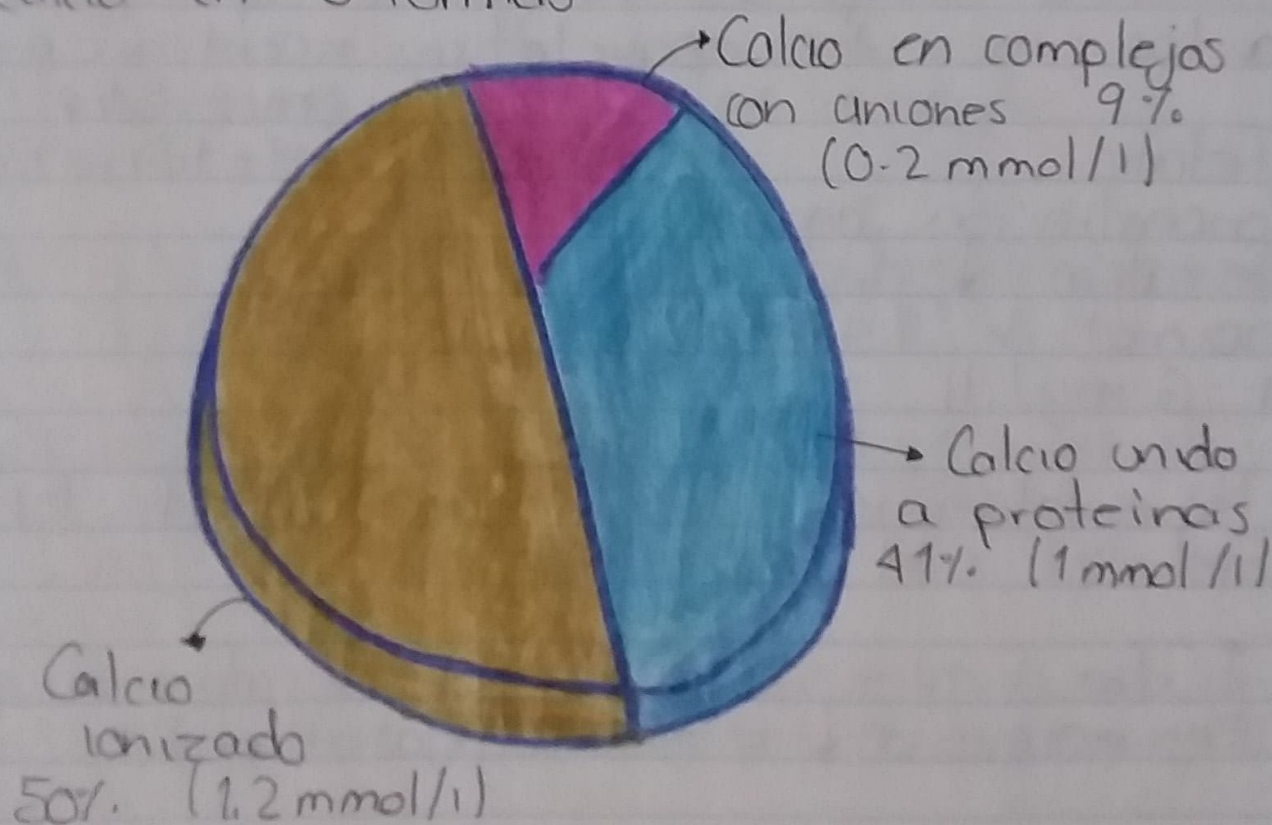 Calcio en complejos
con aniones 9%.
(0.2 mmol/l)
Calcio unido
a proteinas
41%. (1 mmol/l)
Calcio
ionizado
50%. (1.2 mmol/l)